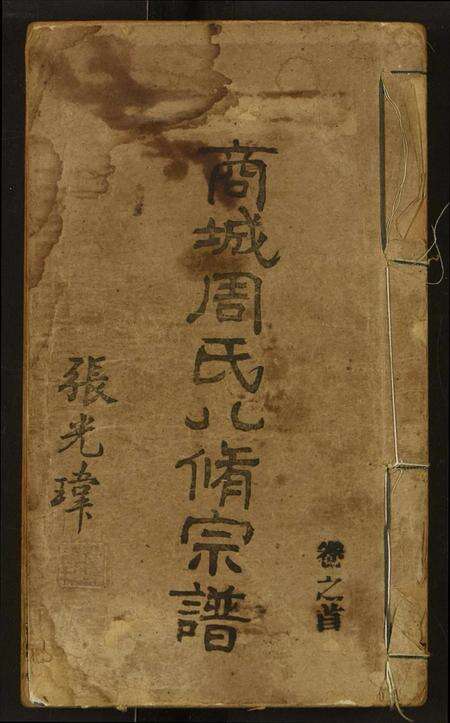 卷之首
商城周氏八脩宗譜
張光瑋